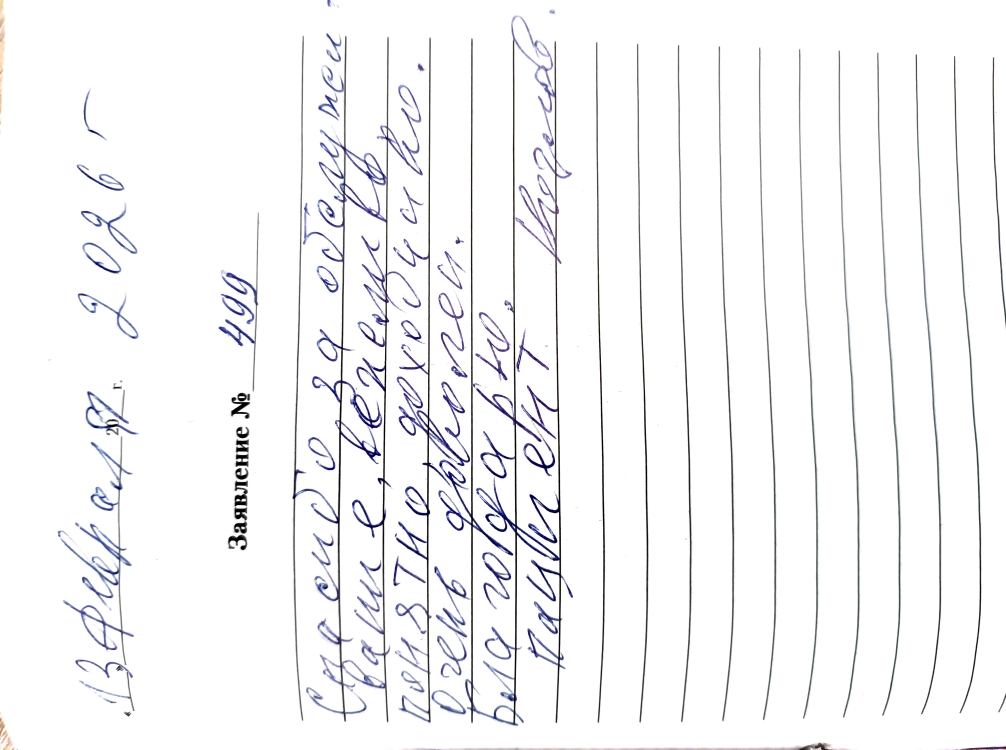 «13 февраля 20 г. 2026 г
Заявление № 499
Спасибо за обслужен
ваше, вежеливо
понятно, доходчиво.
Очень доволен.
Благодарю.
пациент